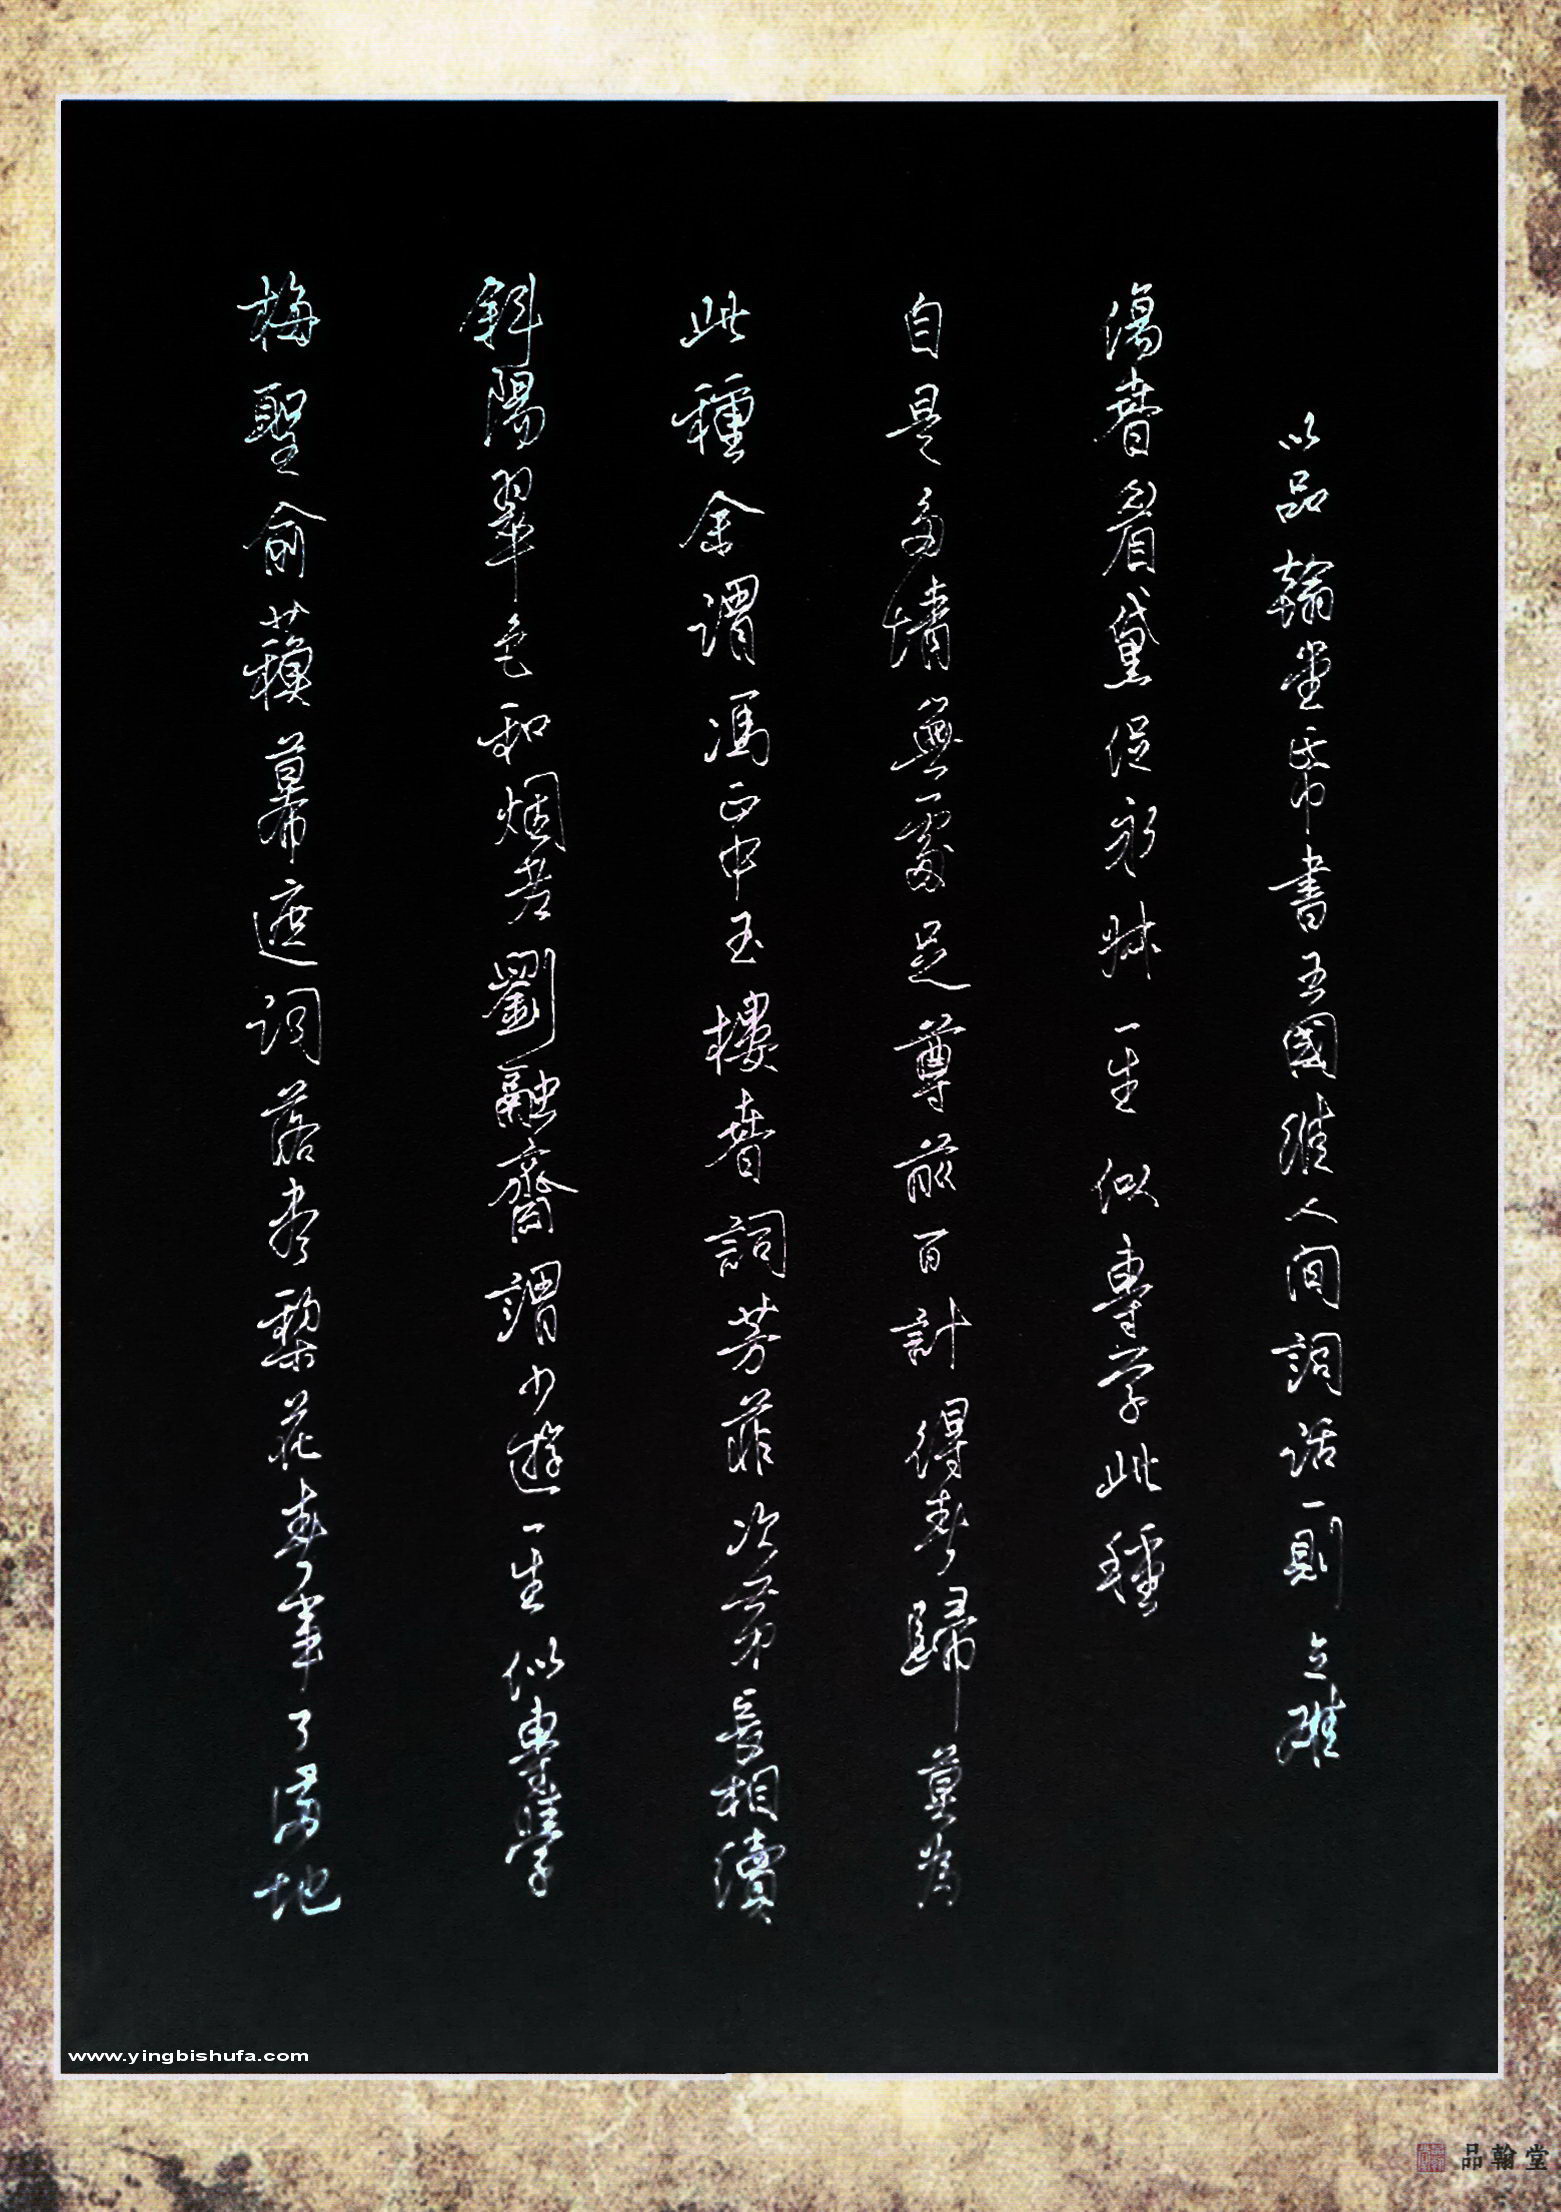 梅聖俞蘇幕遮詞落盡梨花春事了滿地
斜陽翠色和烟老劉融齋謂少遊一生似專學
此種余謂馮正中玉樓春詞芳菲次第長相續
自是多情無處足尊前百計得春歸莫為
傷春眉黛促永叔一生似專学此種
以品翰堂帋書王國維人間詞話一則
www.yingbishufa.com
品翰堂